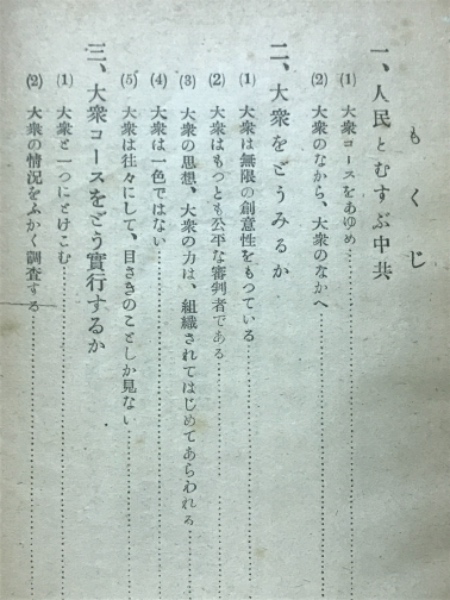 もくじ
一、人民とむすぶ中共
(1) 大衆コースをあゆめ
(2) 大衆のなから、大衆のなかへ
二、大衆をどうみるか
(1) 大衆は無限の創意性をもつている
(2) 大衆はもつとも公平な審判者である
(3) 大衆の思想、大衆の力は、組織されてはじめてあらわれる
(4) 大衆は一色ではない
(5) 大衆は往々にして、目さきのことしか見ない
三、大衆コースをどう實行するか
(1) 大衆と一つにとけこむ
(2) 大衆の情況をふかく調査する